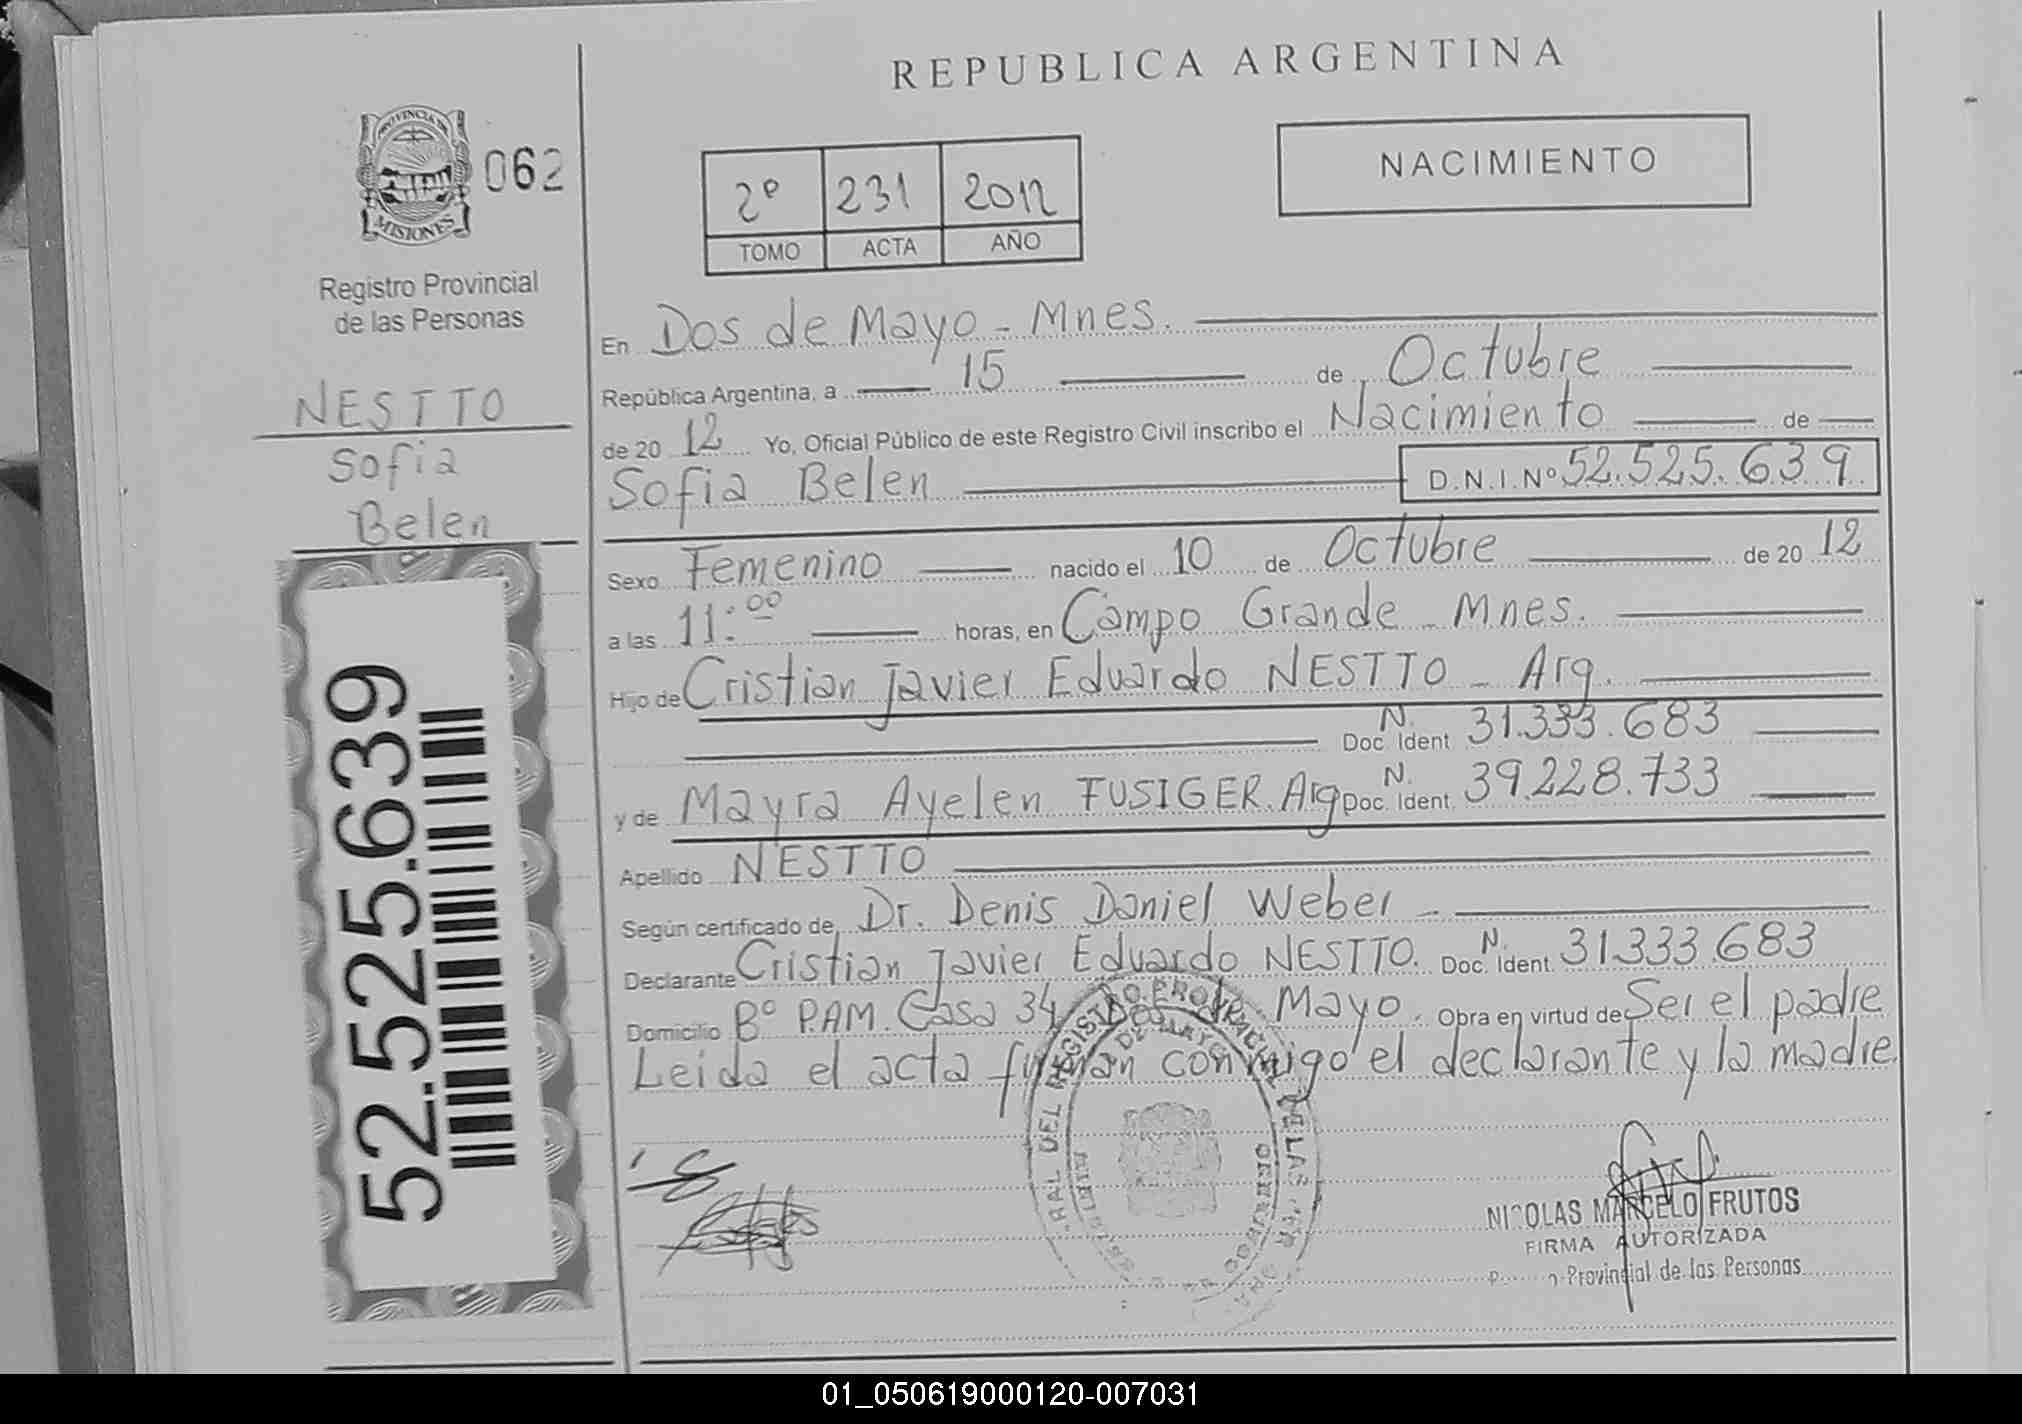 REPUBLICA ARGENTINA
PROVINCIA DE
MISIONES
062
Registro Provincial
de las Personas
NESTTO
Sofia
Belen
52.525.639
2º 231 2012
TOMO ACTA AÑO
NACIMIENTO
En Dos de Mayo - Mnes.
República Argentina, a 15 de Octubre
de 20 12 Yo, Oficial Público de este Registro Civil inscribo el Nacimiento de
Sofia Belen D.N.I.Nº 52.525.639
Sexo Femenino nacido el 10 de Octubre de 20 12
a las 11:00 horas, en Campo Grande - Mnes.
Hijo de Cristian Javier Eduardo NESTTO - Arg.
N.
Doc. Ident 31.333.683
y de Mayra Ayelen FUSIGER. Arg N. Doc. Ident. 39.228.733
Apellido NESTTO
Según certificado de Dr. Denis Daniel Weber -
Declarante Cristian Javier Eduardo NESTTO. N. Doc. Ident. 31333.683
Domicilio Bº P.AM. Casa 34 Dos de Mayo. Obra en virtud de Ser el padre
Leida el acta firman conmigo el declarante y la madre.
NICOLAS MARCELO FRUTOS
FIRMA AUTORIZADA
Provincial de las Personas
01_050619000120-007031